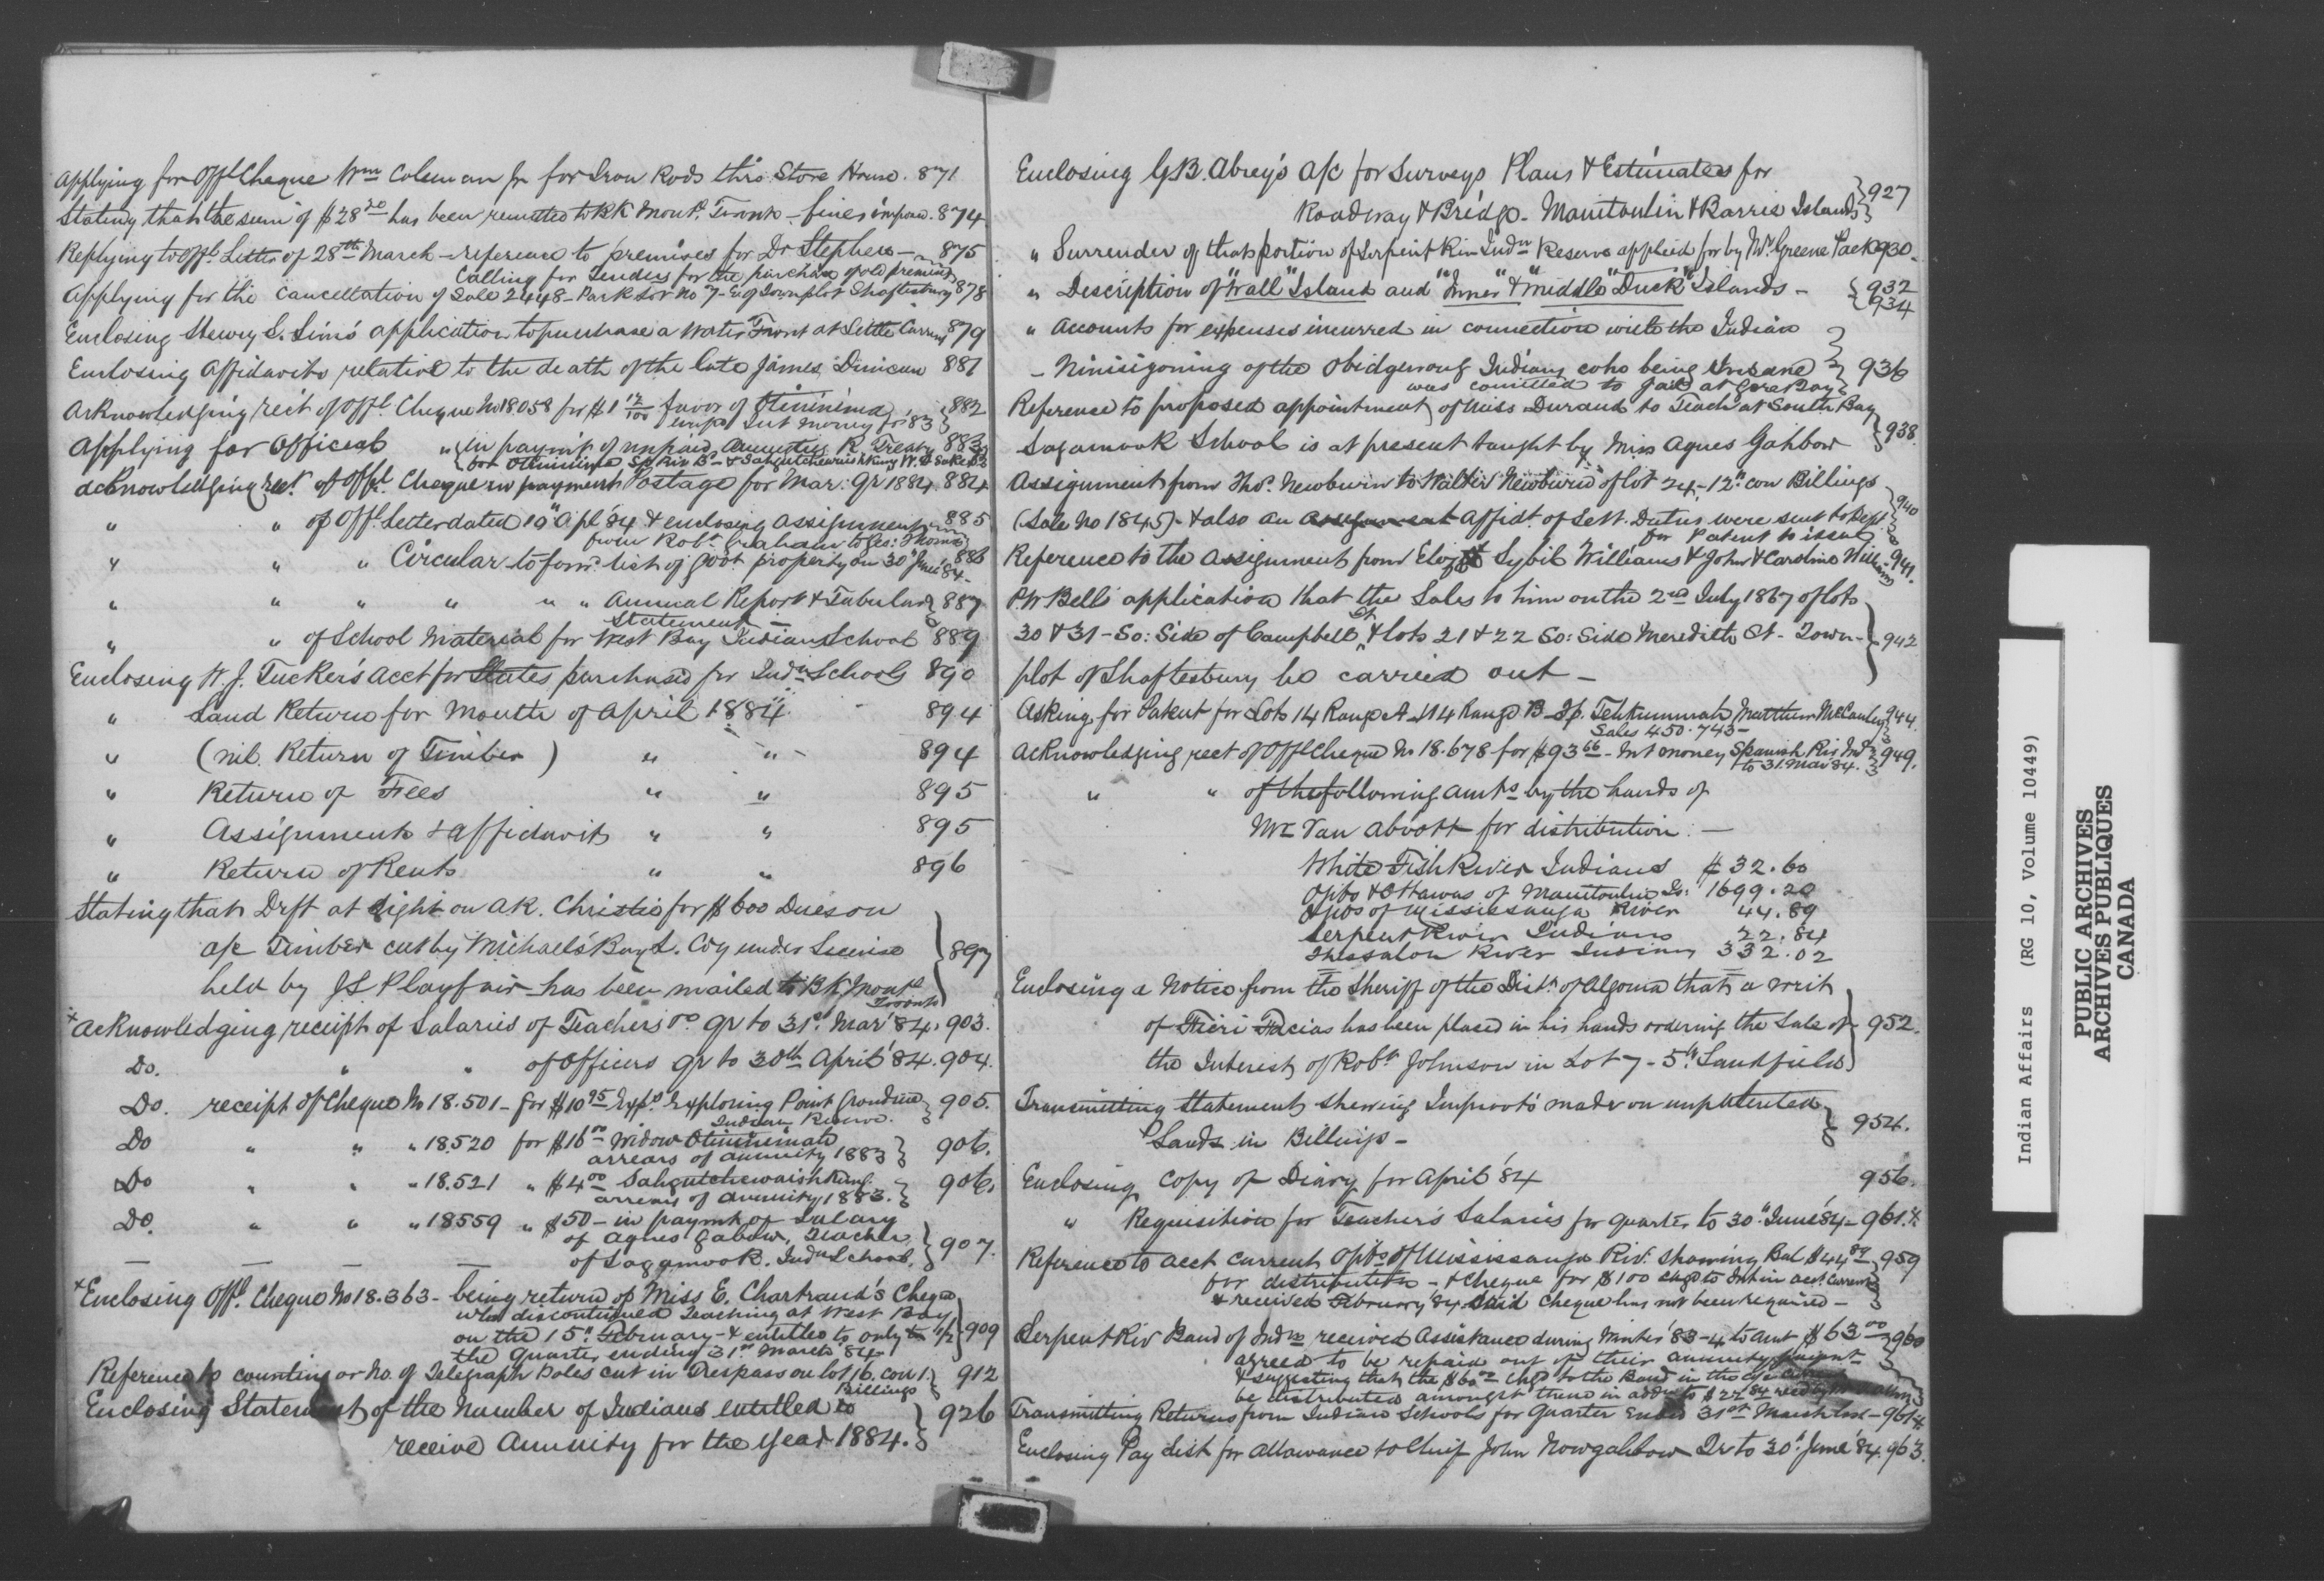 Applying for Offl Cheque Wm Coleman Jr for Iron Rods thro. Store House. 871
Stating that the sum of $28 20 has been remitted to BK Mont. Toronto - fines impou. 874
Replying to Offl. Letter of 28th March - reference to premises for Dr Stephen - 875
Calling for Tenders for the purchase of old premises
Applying for the Cancellation of Sale 2448 - Park Lot No 7 - E. of Townplot Shaftesbury 878
Enclosing Henry S. Sims application to purchase a Water Front at Little Current 879
Enclosing Affidavits relative to the death of the late James Dinican 881
Acknowledging rect of Offl. Cheque No 18058 for $1 12/100 favor of Otininima 882
Int money for '83
Applying for Official " in paymt of unpaid Annuities R. Treaty 883
for Otiniina Sp. Riv B - & Sahgutchewaishkung W.
acknowledging rect. of Offl. Cheque in payment Postage for Mar: Qr 1884. 884
" " of Offl. Letter dated 19" Apl '84 & enclosing Assignment 885
from Robt. Graham to Geo: Thomas
" " " Circular to forwd. list of govt property on 30" June '84 - 886
" " " " " " Annual Report & Tabular 887
Statement -
" " of School Material for West Bay Indian School 889
Enclosing W. J. Tucker's Acct for Slates purchased for Indn Schools 890
" Land Return for Month of April 1884. - 894
" (nil. Return of Timber) " " - 894
" Return of Fees " " 895
" Assignments & affidavits " " 895
" Return of Rents " " 896
Stating that Drft at sight on A.K. Christie for $600 Dues on
a/c Timber cut by Michael's Bay L. Coy under License 897
held by J S Playfair has been mailed to Bk Montl
Toronto
x Acknowledging receipt of Salaries of Teachers Do. Qr to 31st. Mar '84. 903.
Do. " " of Officers Qr to 30th April '84. 904.
Do. receipt of Cheque No 18.501 - for $10 95 Exps. Exploring Point Grondine 905.
Indian Reserve.
Do " " " 18.520 for $16 00 Widow Otinineimata
arrears of annuity 1883 906.
Do " " " 18.521 " $4 00 Sahgutchewaishkung
arrears of annuity 1883. 906.
Do. " " " 18559 " $50 - in paymt of Salary
of Agnes Gabow, Teacher 907.
of Sagamook. Indn School.
x Enclosing Offl. Cheque No 18.363 - being return of Miss E. Chartrand's Cheque
who discontinued Teaching at West Bay
on the 15". February - & entitled to only 1/2 909
the Quarter ending 31st March '84
Reference to counting or No. of Telegraph Poles cut in Trespass on lot 16. con 1. 912
Billings
Enclosing Statement of the Number of Indians entitled to 926
receive Annuity for the Year 1884.
Enclosing G.B. Abrey's a/c for Surveys Plans & Estimates for
Roadway & Bridge - Manitoulin & Barrie Islands 927
" Surrender of that portion of Serpent Riv Indn Reserve applied for by Mr. Greene Pack 930.
" Description of "Wall" Island and "Inner" & "Middle" Duck" Islands - 932
934
" Accounts for expenses incurred in connection with the Indian
- Ninisigoning of the Obidgewong Indians who being Insane 936
was comitted to Gaol at Gore Bay
Reference to proposed appointment of Miss Durand to Teach at South Bay
Sagamook School is at present taught by Miss Agnes Gahbow 938.
Assignment from Thos. Newburn to Walter Newburn of lot 24, 12". con Billings
(Sale No 1845) - & also an Affidt. of Sett. Duties were sent to Dept. 940
for Patent to issue
Reference to the Assignment from Elizth Sybil Williams & John & Caroline Williams - 941.
P.W Bell's application that the Sales to him on the 2nd July 1867 of lots
30 & 31 - So: Side of Campbell St. & lots 21 & 22 So: Side Meredith St. Town- 942
plot of Shaftesbury be carried out -
Asking for Patent for Lots 14 Range A & 14 Range B - Tp. Tehkummah Matthew McCauley 944.
Sales 450. 743 -
Acknowledging rect of Offl Cheque No 18.678 for $93 66 - Int money Spanish Riv Ind 949.
to 31. Mar '84.
" " of the following amts by the hands of
Mr Van Abbott for distribution: -
White Fish River Indians $32.60
Ojibs & Ottawas of Manitoulin Is: 1699.20
Ojibs of Mississauga River 44.89
Serpent River Indians 22.84
Thessalon River Indians 332.02
Enclosing a Notice from the Sheriff of the Dist. of Algoma that a Writ
of Fieri Facias has been placed in his hands ordering the Sale of 952.
the Interest of Robt. Johnson in Lot 7 - 5th. Sandfield
Transmitting Statement shewing Improvts made on unpatented
Lands in Billings - 954.
Enclosing Copy of Diary for April '84 956.
" Requisition for Teacher's Salaries for quarter to 30". June '84 - 961.
Reference to Acct Current Ojibs of Mississauga Riv. showing Bal $44 89 959
for distribution - & Cheque for $100 chgd to Int in acct. current
& received February '84 Said cheque has not been required -
Serpent Riv Band of Indns received Assistance during Winter '83-4 to amt $63 00 960
agreed to be repaid out of their annuity
& suggesting that the $60 00 chgd to the Band in the a/c
be distributed amongst them in addn to $22 84
Transmitting Returns from Indian Schools for Quarter Ended 31st March last - 961
Enclosing Pay List for Allowance to Chief John Nowgahbow Qr to 30". June '84. 963.
Indian Affairs (RG 10, Volume 10449)
PUBLIC ARCHIVES
ARCHIVES PUBLIQUES
CANADA